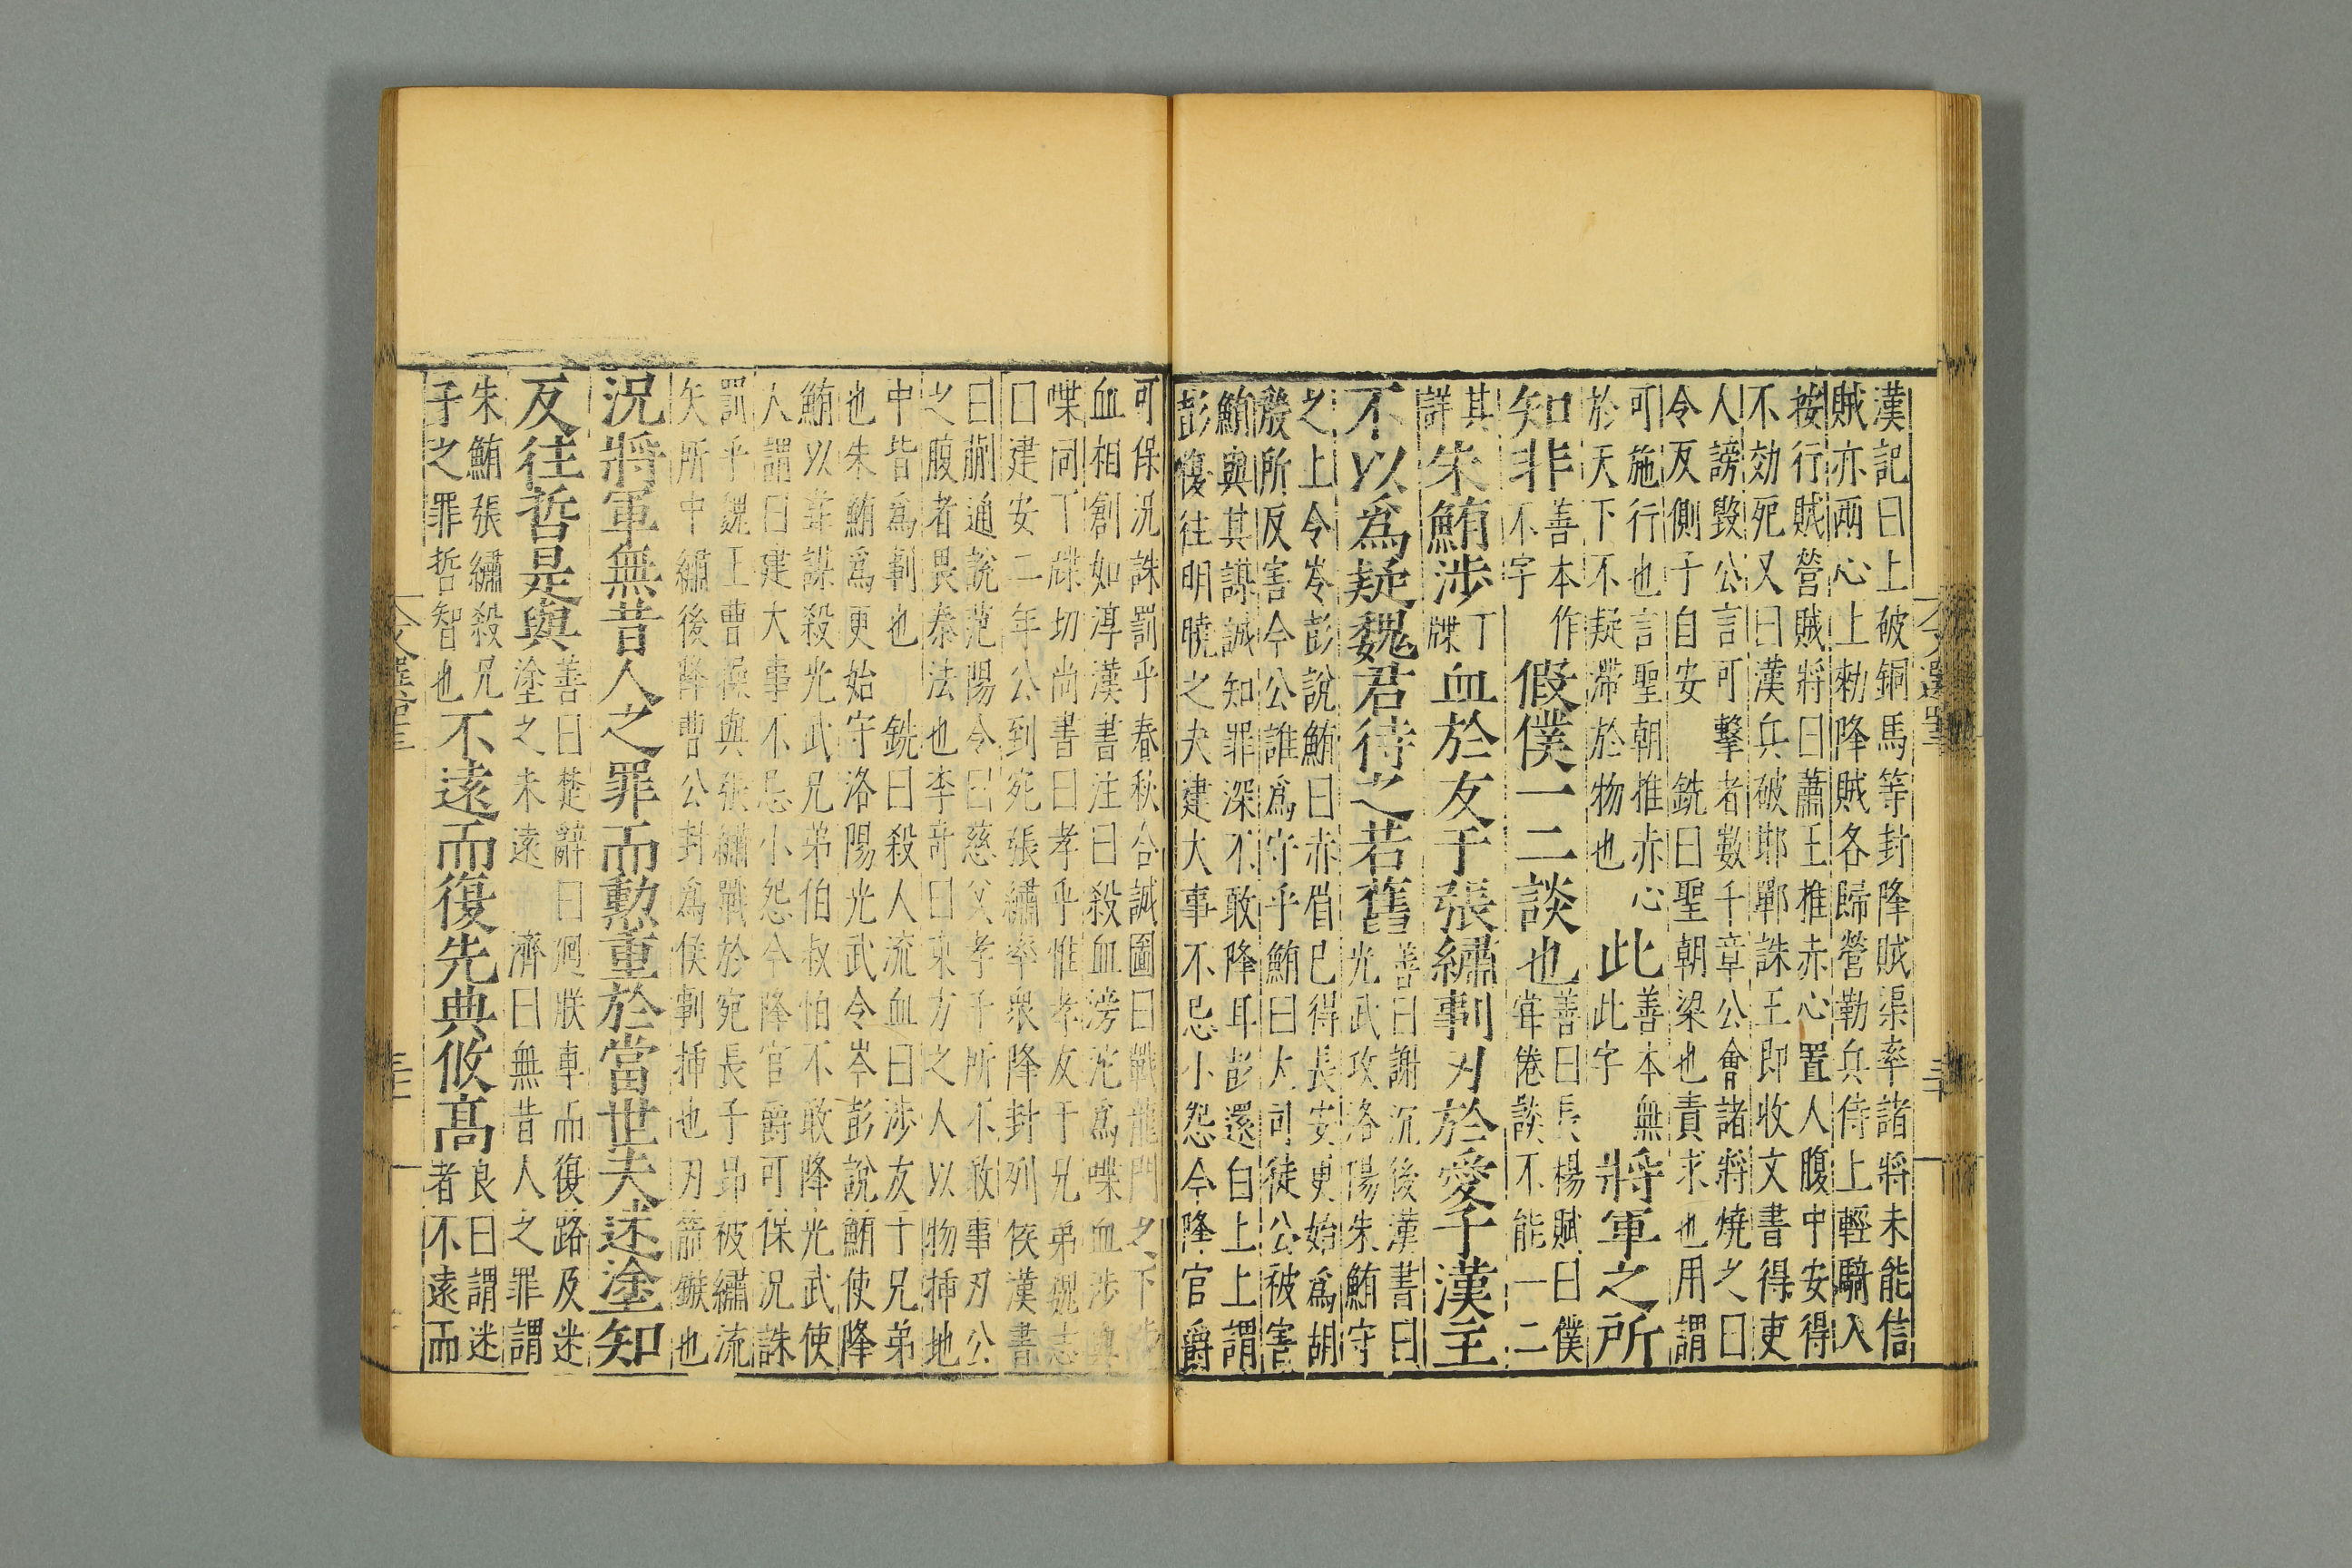 漢記曰上破銅馬等封降賊渠率諸將未能信
賊亦兩心上勑降賊各歸營勒兵侍上輕騎入
按行賊營賊將曰蕭王推赤心置人腹中安得
不効死又曰漢兵破邯鄲誅王即收文書得吏
人謗毀公言可擊者數千章公會諸將燒之曰
令反側于自安 銑曰聖朝梁也責求也用謂
可施行也言聖朝推赤心
於天下不疑滯於物也
此
善本無
此字
將軍之所
知非
善本作
不字
假僕一二談也
善曰長楊賦曰僕
甞倦談不能一二
其
詳
朱鮪涉
丁
牒
血於友于張繡剚刃於愛子漢主
不以爲疑魏君待之若舊
善曰謝沉後漢書曰
光武攻洛陽朱鮪守
之上令岑彭說鮪曰赤眉已得長安更始爲胡
殷所反害今公誰爲守乎鮪曰大司徒公被害
鮪與其謀誠知罪深不敢降耳彭還白上上謂
彭復往明曉之夫建大事不忌小怨今降官爵
可保況誅罰乎春秋合誠圖曰戰龍門之下涉
血相創如淳漢書注曰殺血滂沱爲喋血涉與
喋同丁牒切尚書曰孝乎惟孝友于兄弟魏志
曰建安二年公到宛張繡率衆降封列侯漢書
曰蒯通說范陽令曰慈父孝子所不敢事刃公
之腹者畏秦法也李竒曰東方之人以物揷地
中皆爲剚也 銑曰殺人流血曰涉友于兄弟
也朱鮪爲更始守洛陽光武令岑彭說鮪使降
鮪以謀殺光武兄弟伯叔怕不敢降光武使
人謂曰建大事不忌小怨今降官爵可保況誅
罰乎魏王曹操與張繡戰於宛長子昂被繡流
矢所中繡後降曹公封爲侯剚揷也刃箭鏃也
況將軍無昔人之罪而勲重於當世夫迷塗知
反往哲是與
善曰楚辭曰廻朕車而復路及迷
塗之未遠 濟曰無昔人之罪謂
朱鮪張繡殺兄
子之罪哲智也
不遠而復先典攸髙
良曰謂迷
者不遠而